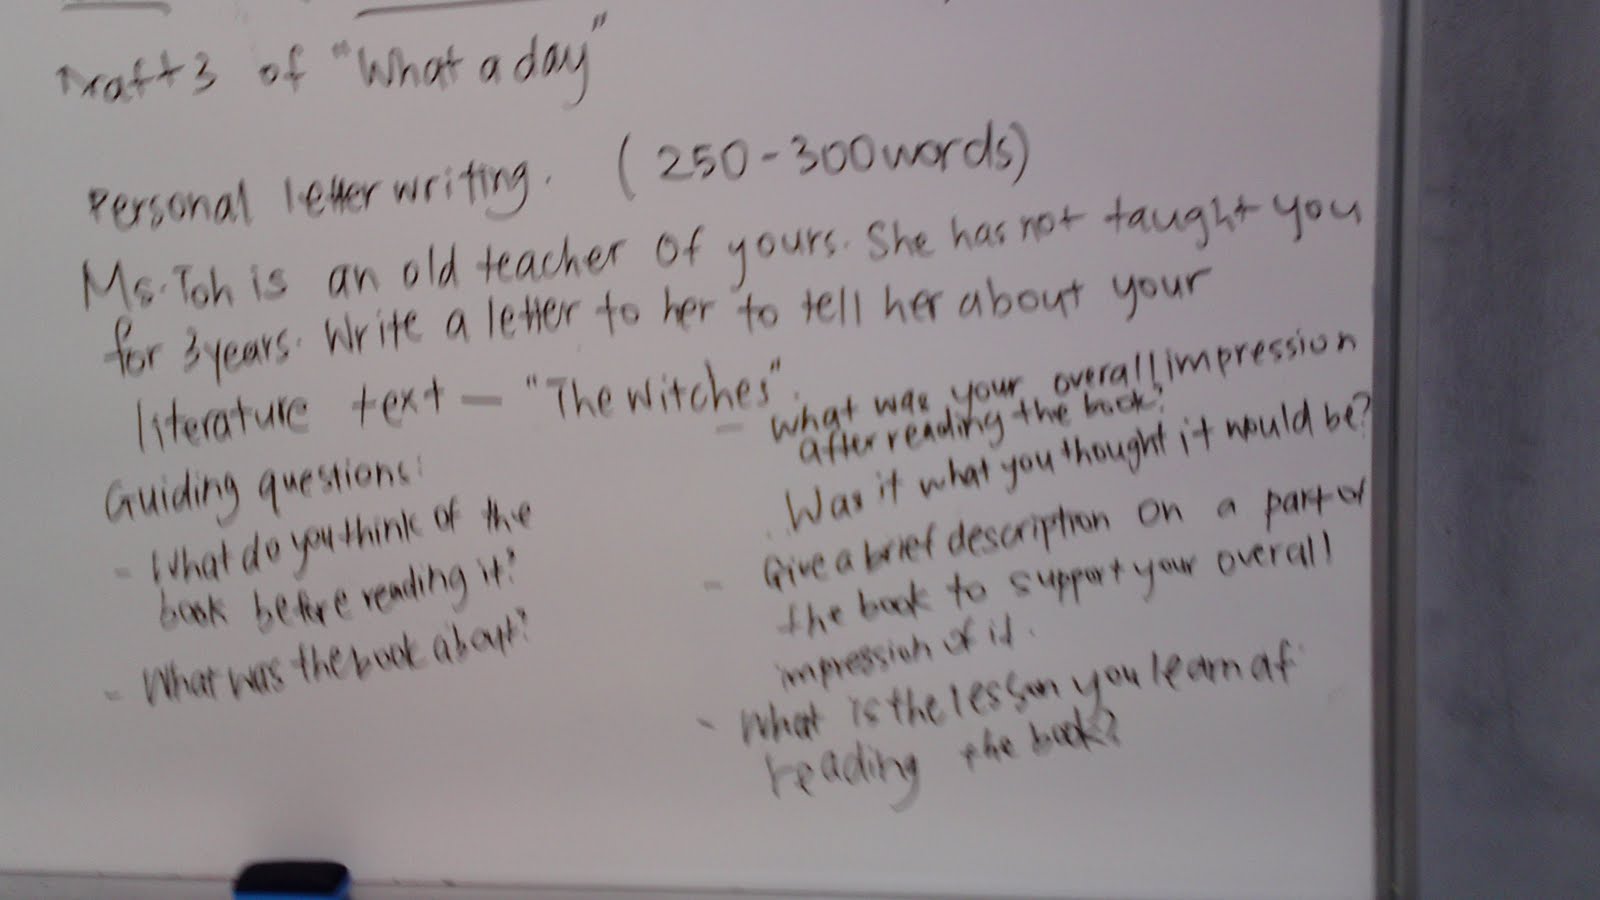 Draft 3 of "What a day"
Personal letter writing. (250-300 words)
Ms. Toh is an old teacher of yours. She has not taught you
for 3 years. Write a letter to her to tell her about your
literature text - "The Witches".
Guiding questions:
- What do you think of the
book before reading it?
- What was the book about?
- What was your overall impression
after reading the book?
Was it what you thought it would be?
- Give a brief description on a part of
the book to support your overall
impression of it.
- What is the lesson you learn af
reading the book?